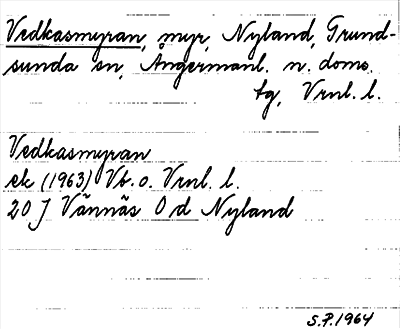 Vedkasmyran, myr, Nyland, Grund-
sunda sn, Ångermanl. n. doms.
tg, Vrnl. l.
Vedkasmyran
ek (1963) Vb. o. Vrnl. l.
20 J Vännäs 0 d Nyland
S.P. 1964